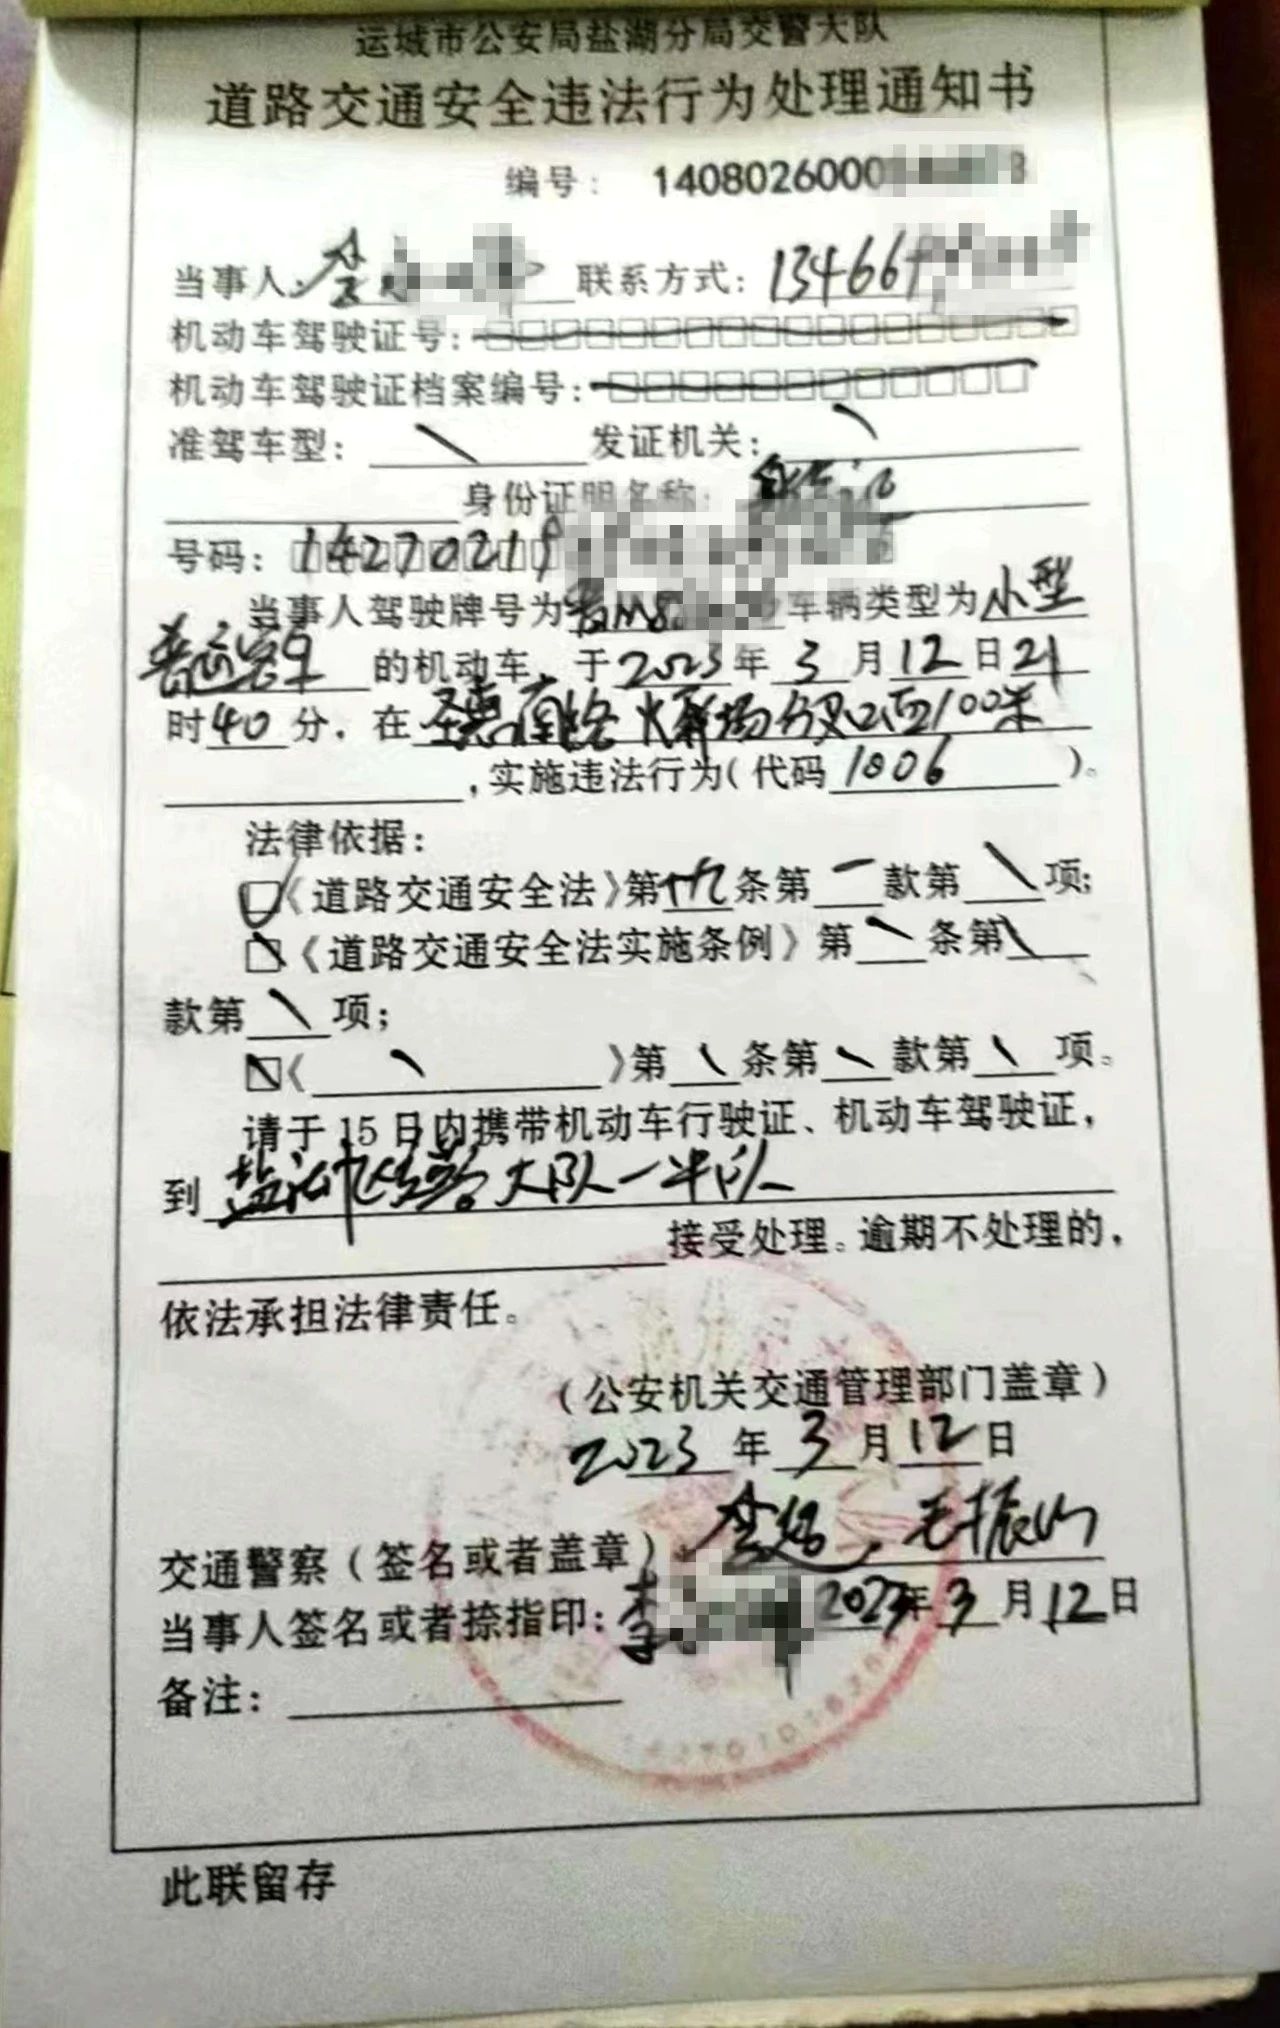 运城市公安局盐湖分局交警大队
道路交通安全违法行为处理通知书
编号: 14080260003
当事人: 李 联系方式: 134669
机动车驾驶证号:
机动车驾驶证档案编号:
准驾车型: \ 发证机关: \
身份证明名称:
号码: 14270219
当事人驾驶牌号为晋M8 车辆类型为小型
普通客车 的机动车, 于2023年 3 月12日21
时40分, 在圣惠南路 场分叉口西100米
, 实施违法行为(代码 1006 )。
法律依据:
☑《道路交通安全法》第十九条第一款第\项;
《道路交通安全法实施条例》第\条第\
款第\项;
《 \ 》第\条第\款第\项。
请于15日内携带机动车行驶证、机动车驾驶证,
到 盐湖交警大队一中队
接受处理。逾期不处理的,
依法承担法律责任。
(公安机关交通管理部门盖章)
2023年 3 月12日
交通警察(签名或者盖章) 毛振山
当事人签名或者捺指印: 李 2023年3月12日
备注:
此联留存